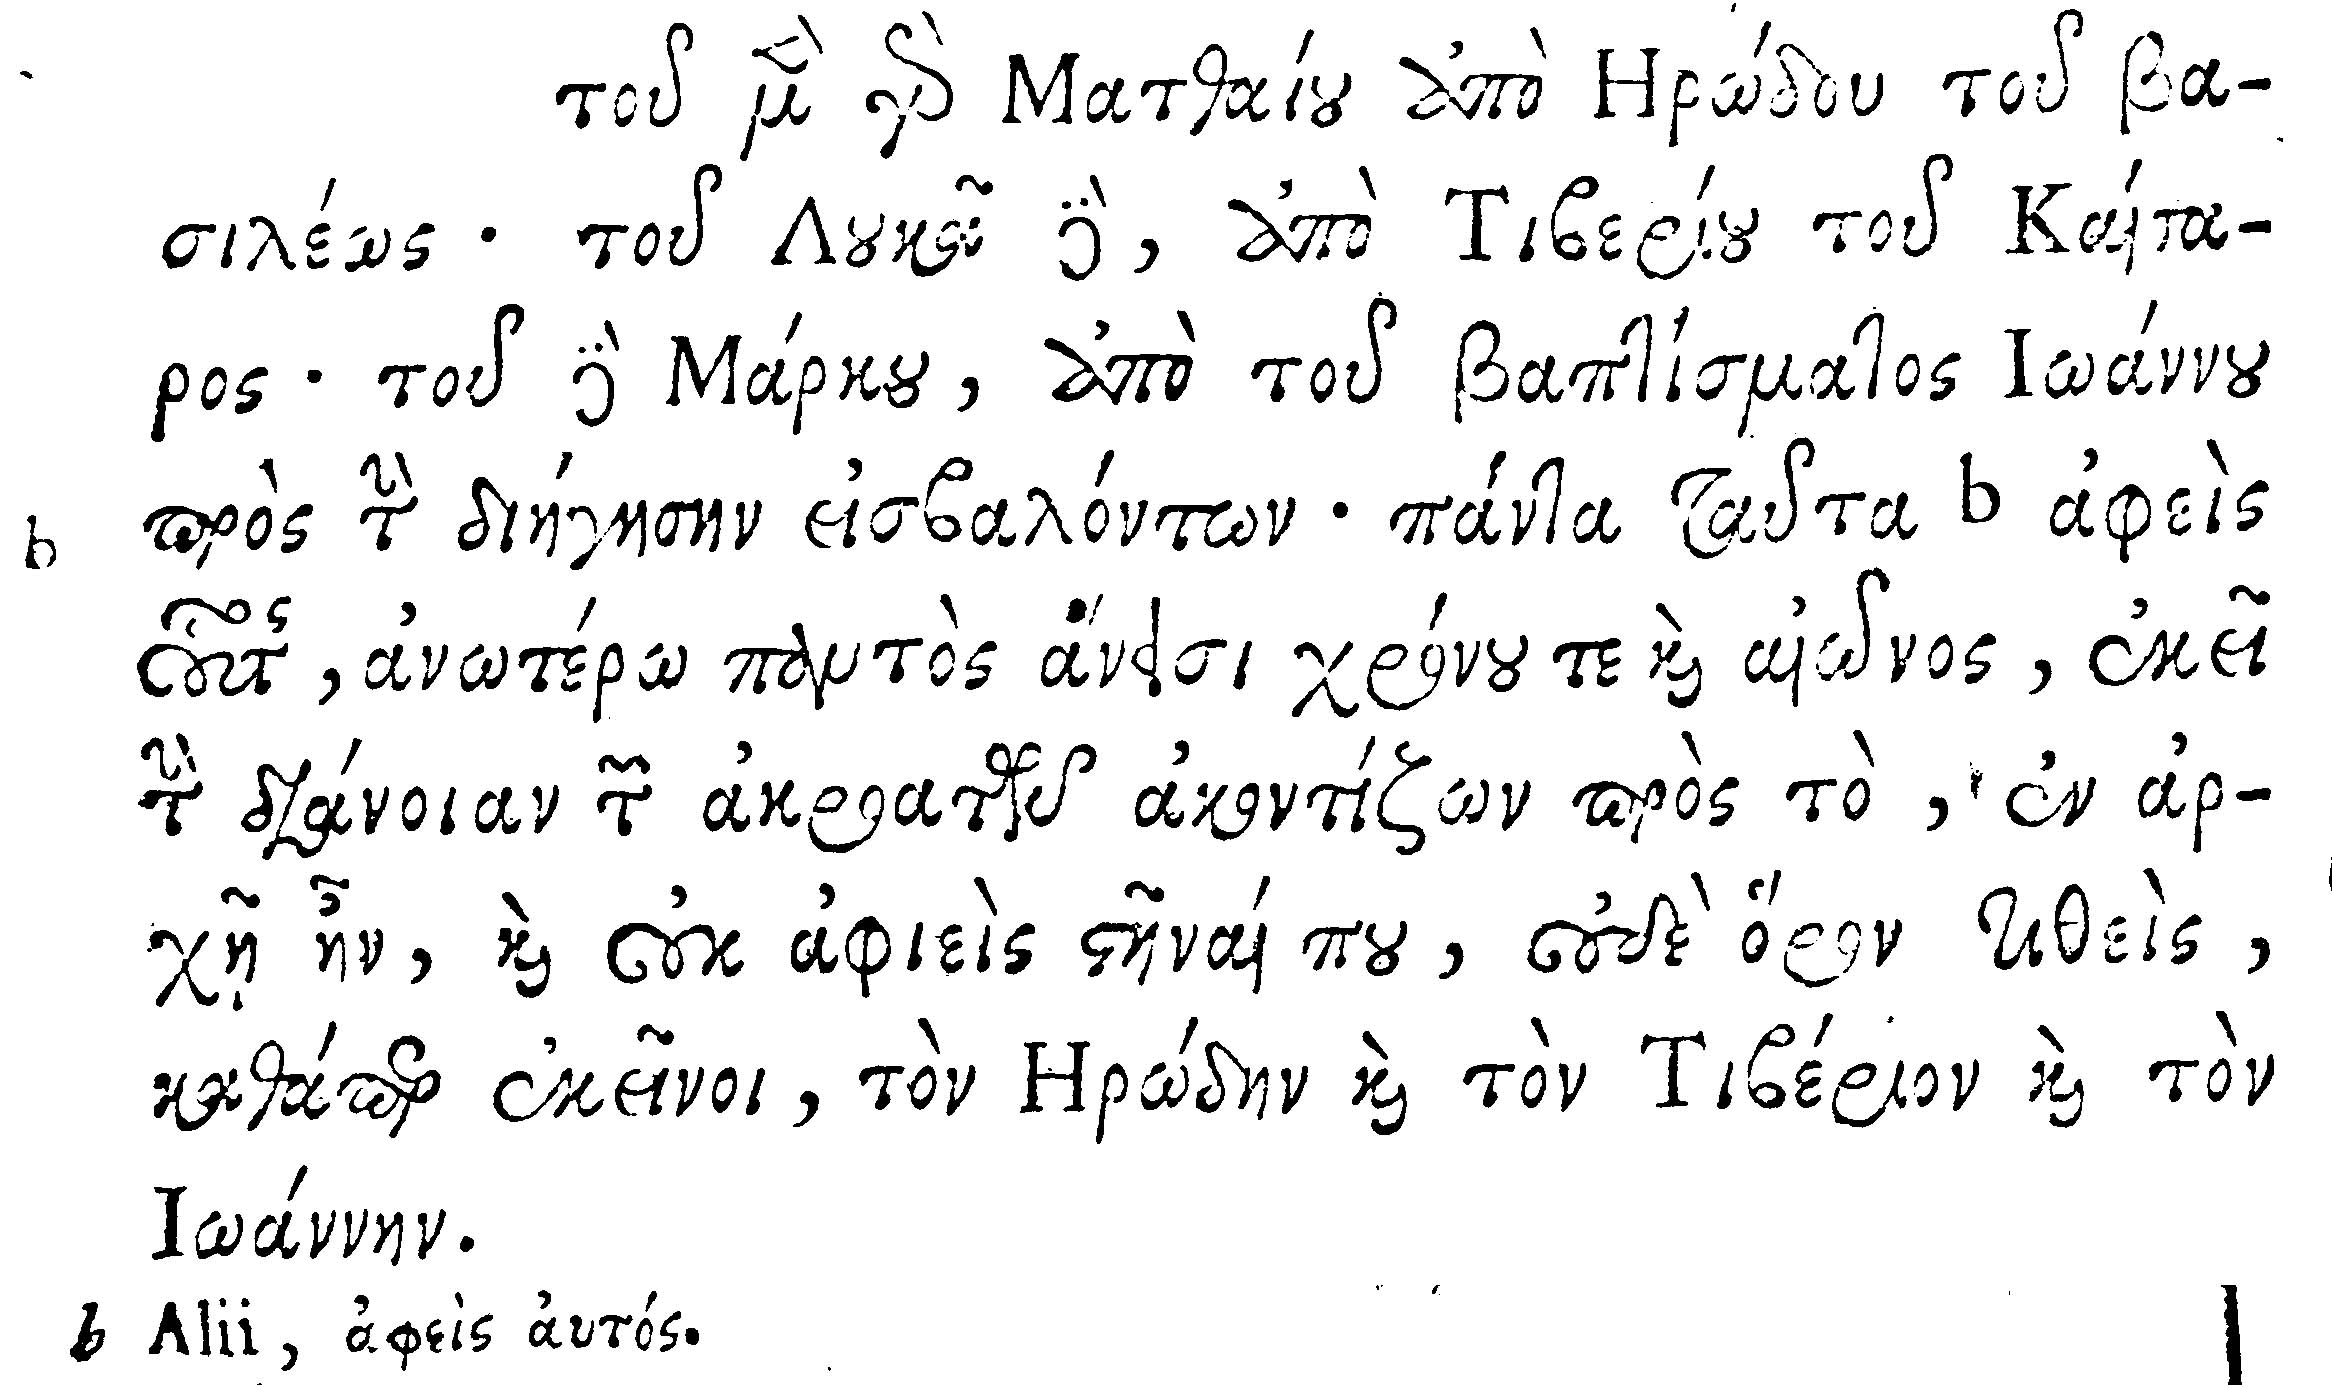 τοῦ μὲν γὸ Ματθαίου ἀπὸ Ηρώδου τοῦ βα-
σιλέως · τοῦ Λουκᾶ δὲ, ἀπὸ Τιβερίου τοῦ Καίσα-
ρος · τοῦ δὲ Μάρκου, ἀπὸ τοῦ βαπτίσματος Ιωάννου
b πρὸς τὴν διήγησιν εἰσβαλόντων · πάντα ταῦτα b ἀφεὶς
οὗτος, ἀνωτέρω παντὸς ἄνεισι χρόνου τε καὶ αἰῶνος, ἐκεῖ
τὴν διάνοιαν τῶν ἀκροατῶν ἀκοντίζων πρὸς τὸ, ἐν ἀρ-
χῇ ἦν, καὶ οὐκ ἀφιεὶς στῆναί που, οὐδὲ ὅρον τιθεὶς,
καθάπερ ἐκεῖνοι, τὸν Ηρώδην καὶ τὸν Τιβέριον καὶ τὸν
Ιωάννην.
b Alii, ἀφεὶς ἀυτός.